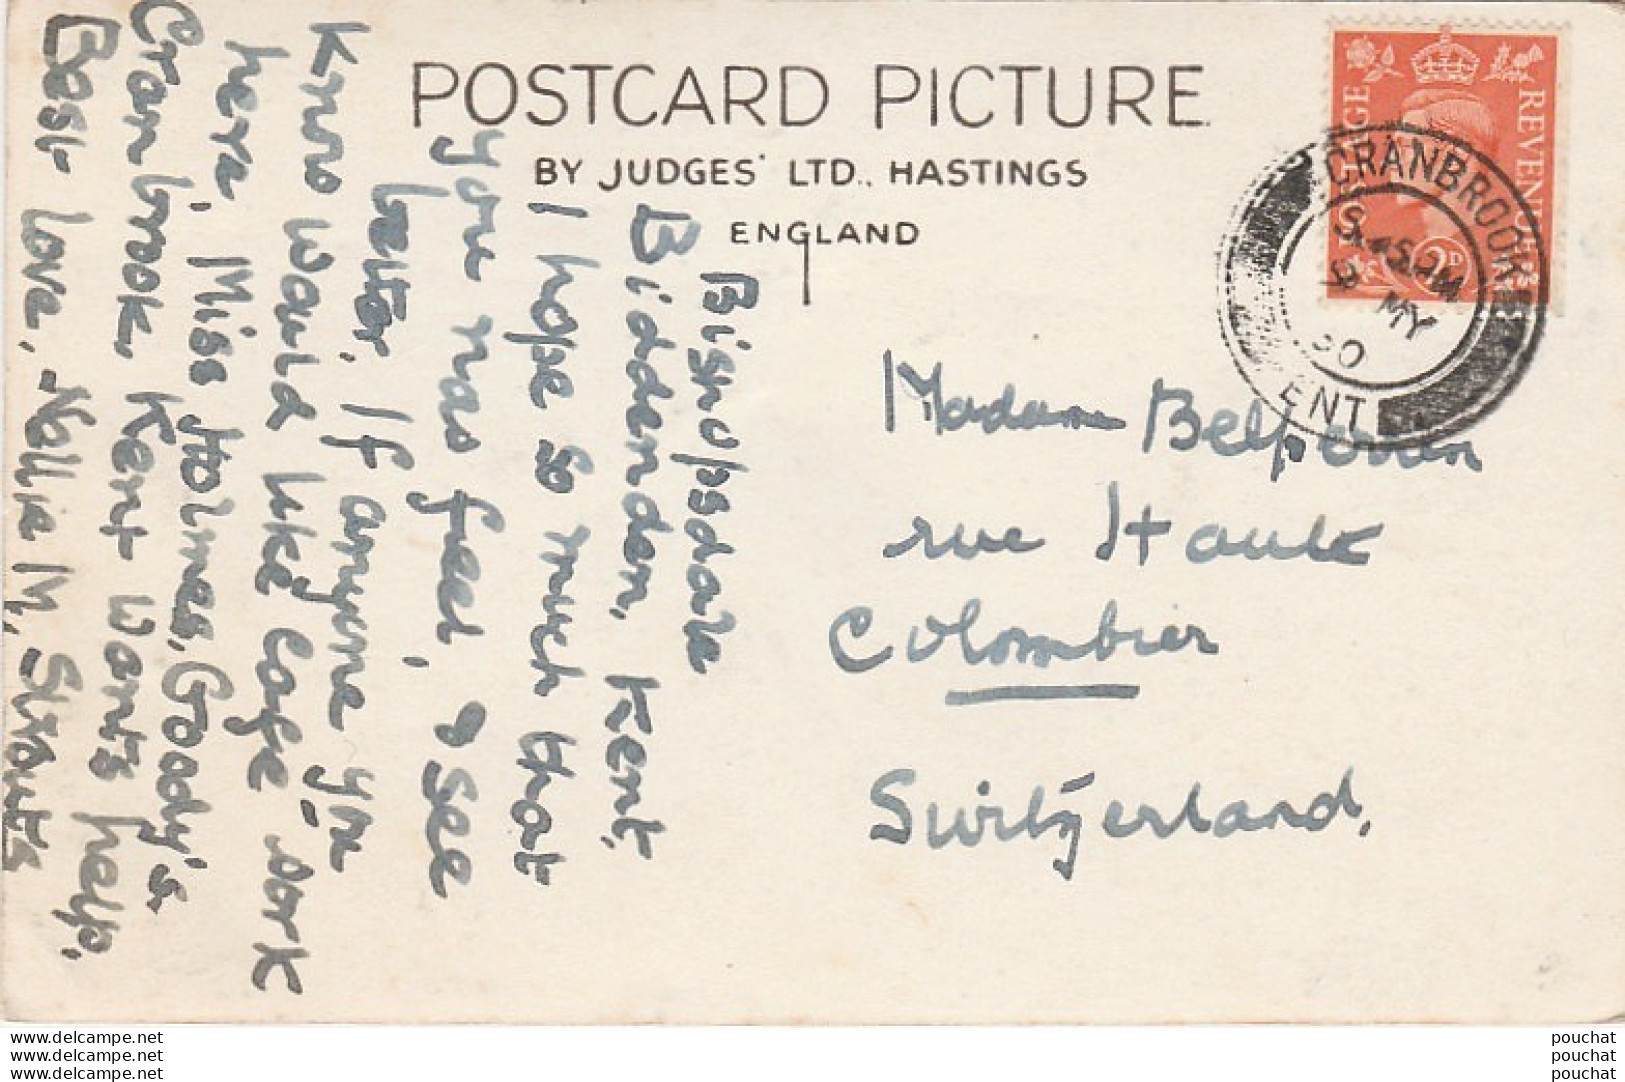 POSTCARD PICTURE
BY JUDGES' LTD., HASTINGS
ENGLAND
POSTAGE REVENUE
2D
CRANBROOK
MY
50
ENT
Bishopsdale
Biddenden, Kent.
I hope so much that
you nas feel, & see
better. If anyone you
know would like cafe work
here, Miss Holmes, Goody's
Cranbrook Kent wants help.
Best love, Nellie M.
Madame
rue Haute
Colombier
Switzerland.
www.delcampe.net
www.delcampe.net
www.delcampe.net
pouchat
pouchat
pouchat